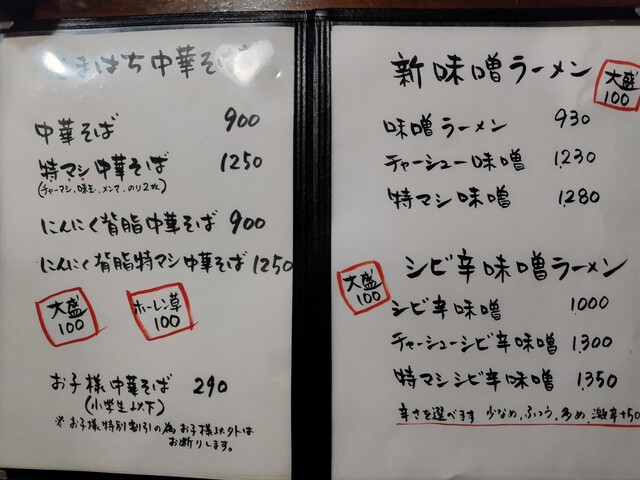 まはち中華そば
中華そば 900
特マシ中華そば 1250
(チャーマシ、味玉、メンマ、のり2枚)
にんにく背脂中華そば 900
にんにく背脂特マシ中華そば 1250
大盛 100
ホーレン草 100
お子様中華そば 290
(小学生以下)
※お子様特別割引の為お子様以外は
お断りします。
新味噌ラーメン
大盛 100
味噌ラーメン 930
チャーシュー味噌 1,230
特マシ味噌 1,280
シビ辛味噌ラーメン
大盛 100
シビ辛味噌 1,000
チャーシューシビ辛味噌 1,300
特マシシビ辛味噌 1,350
辛さを選べます 少なめ、ふつう、多め、激辛+50